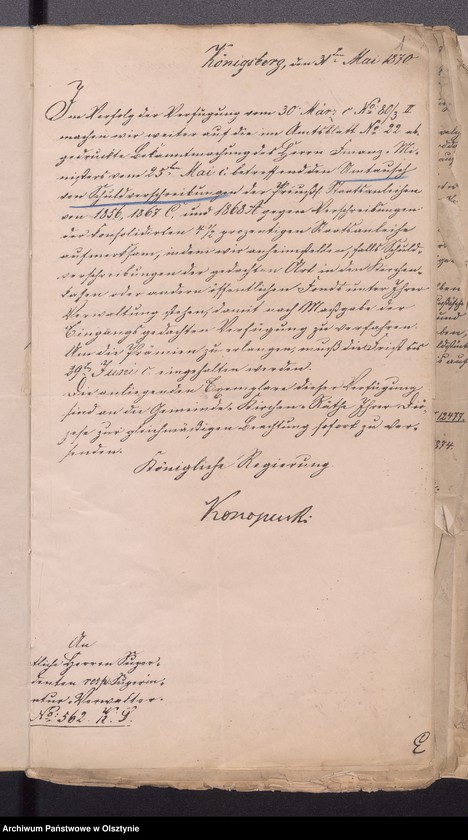 Königsberg, den 31ten Mai 1870
Im Verfolg der Verfügung vom 30. März c. No. 80/3 II
machen wir weiter auf die im Amtsblatt No. 22 ab-
gedruckte Bekanntmachung des Herrn Finanz-Mi-
nisters vom 25ten Mai c. betreffend den Umtausch
von Schuldverschreibungen der Preuß. Staatsanleihen
von 1856, 1867 C. und 1868 A gegen Verschreibungen
der konsolidirten 4 1/2 prozentigen Staatsanleihe
aufmerksam, indem wir anheimstellen, falls Schuld-
verschreibungen der gedachten Art in den Kirchen-
kassen oder andern öffentlichen Fonds unter Ihrer
Verwaltung stehen, damit nach Maßgabe der
Eingangs gedachten Verfügung zu verfahren.
Um die Prämien zu erlangen, muß die Frist bis
29ten Juni c. eingehalten werden.
Die anliegenden Exemplare dieser Verfügung
sind an die Gemeinde-Kirchen-Räthe Ihrer Diö-
zese zur gleichmäßigen Beachtung sofort zu ver-
senden.
Königliche Regierung
An
Herren Super-
denten resp. Superin-
tur-Verwalter.
No. 562. K. S.
12477.
874.
Archiwum Państwowe w Olsztynie